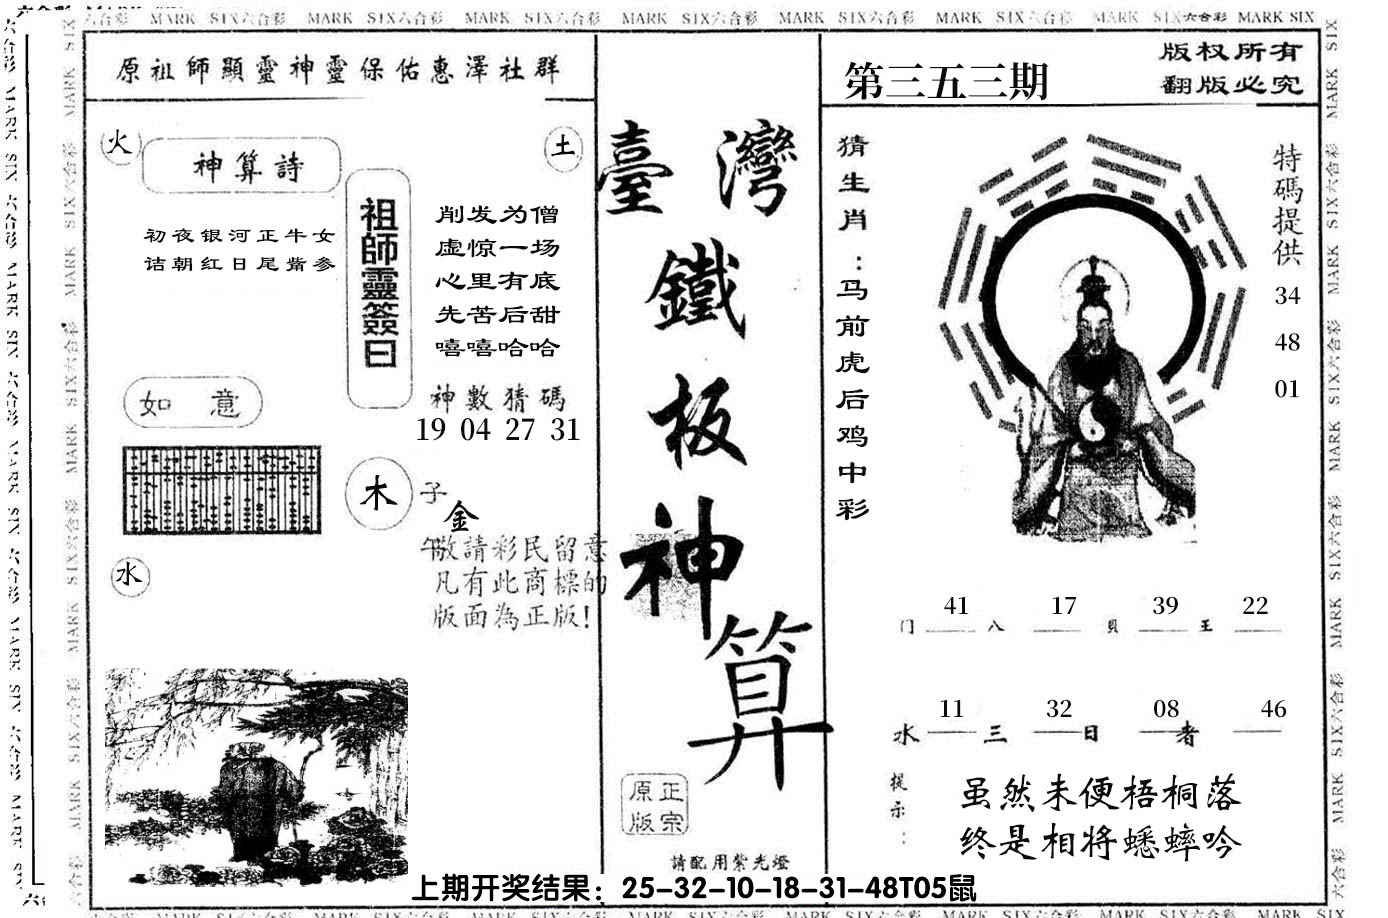 MARK SIX六合彩 MARK SIX六合彩 MARK SIX六合彩 MARK SIX六合彩 MARK SIX六合彩 MARK SIX六合彩 MARK SIX六合彩 MARK SIX
原祖師顯靈神靈保佑惠澤社群
火
土
神算詩
初夜银河正牛女
诘朝红日尾觜参
祖師靈簽曰
削发为僧
虚惊一场
心里有底
先苦后甜
嘻嘻哈哈
如意
神數猜碼
19 04 27 31
木
子
金
午
敬請彩民留意
凡有此商標的
版面為正版!
水
臺灣
鐵
板
神
算
正宗
原版
請配用紫光燈
第三五三期
版权所有
翻版必究
猜生肖:马前虎后鸡中彩
特碼提供
34
48
01
41 17 39 22
门 八 貝 王
11 32 08 46
水 三 日 者
提示:
虽然未便梧桐落
终是相将蟋蟀吟
上期开奖结果：25-32-10-18-31-48T05鼠